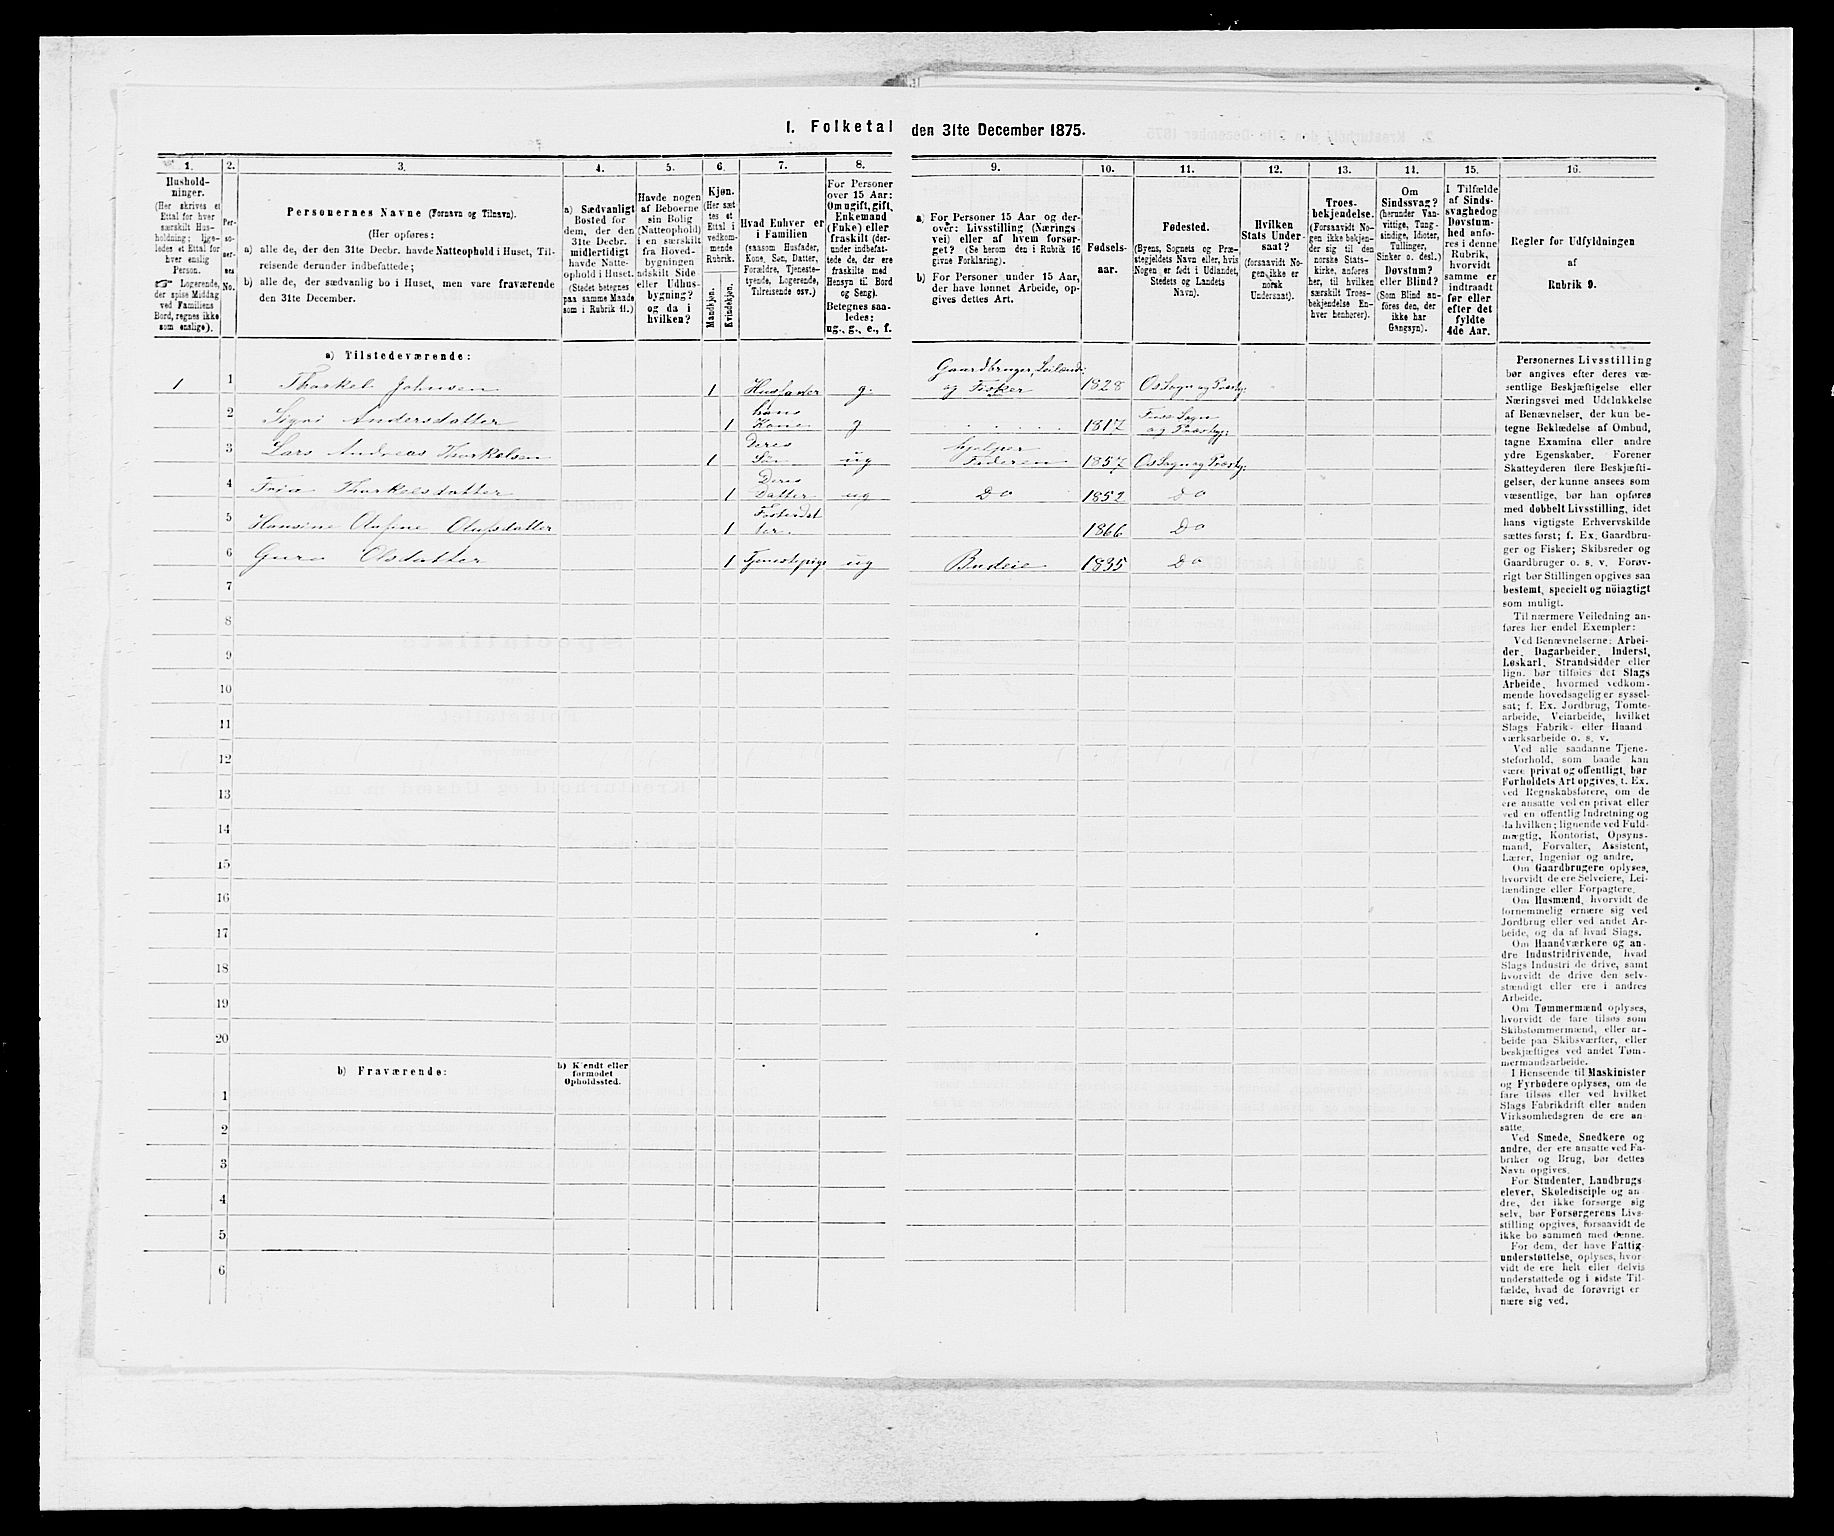 I. Folketal den 31te December 1875.
1. 2. 3. 4. 5. 6. 7. 8. 9. 10. 11. 12. 13. 14. 15. 16.
Hushold-
ninger.
(Her skrives et
Ettal for hver
særskilt Hus-
holdning; lige-
ledes et Ettal for
hver enslig
Person.
☞ Logerende,
der spise Middag
ved Familiens
Bord, regnes ikke
som enslige).
Per-
so-
ner-
nes
No.
Personernes Navne (Fornavn og Tilnavn).
(Her opføres:
a) alle de, der den 31te Decbr. havde Natteophold i Huset, Til-
reisende derunder indbefattede;
b) alle de, der sædvanlig bo i Huset, men vare fraværende
den 31te December.
a) Sædvanligt
Bosted for
dem, der den
31te Decbr.
midlertidigt
havde Natte-
ophold i Huset.
(Stedet betegnes
paa samme Maade
som i Rubrik 11.)
Havde nogen
af Beboerne
sin Bolig
(Natteophold)
i en særskilt
fra Hoved-
bygningen
adskilt Side-
eller Udhus-
bygning?
og da i
hvilken?
Kjøn.
(Her sæt-
tes et
Ettal i
vedkom-
mende
Rubrik.
Mandkjøn.
Kvindekjøn.
Hvad Enhver er
i Familien
(saasom Husfader,
Kone, Søn, Datter,
Forældre, Tjeneste-
tyende, Logerende,
Tilreisende osv.)
For Personer
over 15 Aar:
Om ugift, gift,
Enkemand
(Enke) eller
fraskilt (der-
under indbefat-
tede de, der ere
fraskilte med
Hensyn til Bord
og Seng).
Betegnes saa-
ledes:
ug., g., e., f.
a) For Personer 15 Aar og der-
over: Livsstilling (Nærings
vei) eller af hvem forsør-
get? (Se herom den i Rubrik 16
givne Forklaring).
b) For Personer under 15 Aar,
der have lønnet Arbeide, op-
gives dettes Art.
Fødsels-
aar.
Fødested.
(Byens, Sognets og Præ-
stegjeldets Navn eller, hvis
Nogen er født i Udlandet,
Stedets og Landets
Navn).
Hvilken
Stats Under-
saat?
(forsaavidt No-
gen ikke er
norsk
Undersaat).
Troes-
bekjendelse.
(Forsaavidt No-
gen ikke bekjen-
der sig til den
norske Stats-
kirke, anføres
her, til hvilken
særskilt Troes-
bekjendelse En-
hver henhører).
Om
Sindssvag?
(herunder Van-
vittige, Tung-
sindige, Idioter,
Tullinger,
Sinker o. desl.)
Døvstum?
eller Blind?
(Som Blind an-
føres den, der
ikke har
Gangsyn).
I Tilfælde
af Sinds-
svaghed og
Døvstum-
hed anfø-
res i denne
Rubrik,
hvorvidt
samme er
indtraadt
før eller
efter det
fyldte
4de Aar.
Regler for Udfyldningen
af
Rubrik 9.
a) Tilstedeværende:
1 1 Thorkel Johnsen 1 Husfader g. Gaardbruger, Leilænd: og Fisker 1828 Os Sogn og Præstg:
2 Andersdatter 1 hans Kone g 1817 Sogn og Præstg:
3 Lars Andreas Thorkelsen 1 Deres Søn ug hjelper Faderen 1857 Os Sogn og Præstg:
4 Thorkelsdatter 1 Deres Datter ug Do 1852 Do
5 Hansine Olufine Olufsdatter 1 Fosterdatter 1866 Do
6 Guro Olsdatter 1 Tjenestepige ug Budeie 1835 Do
7
8
9
10
11
12
13
14
15
16
17
18
19
20
b) Fraværende:
b) Kjendt eller
formodet
Opholdssted.
1
2
3
4
5
6
Personernes Livsstilling
bør angives efter deres væ-
sentlige Beskjæftigelse eller
Næringsvei med Udelukkelse
af Benævnelser, der kun be-
tegne Beklædelse af Ombud,
tagne Examina eller andre
ydre Egenskaber. Forener
Skatteyderen flere Beskjæfti-
gelser, der kunne ansees som
væsentlige, bør han opføres
med dobbelt Livsstilling, idet
hans vigtigste Erhvervskilde
sættes først; f. Ex. Gaardbru-
ger og Fisker; Skibsreder og
Gaardbruger o. s. v. Forøv-
rigt bør Stillingen opgives saa
bestemt, specielt og nöiagtigt
som muligt.
Til nærmere Veiledning an-
føres her endel Exempler:
Ved Benævnelserne: Arbei-
der, Dagarbeider, Inderst,
Løskarl, Strandsidder eller
lign. bør tilføies det Slags
Arbeide, hvormed vedkom-
mende hovedsagelig er syssel-
sat; f. Ex. Jordbrug, Tomte-
arbeide, Veiarbeide, hvilket
Slags Fabrik- eller Haand-
værksarbeide o. s. v.
Ved alle saadanne Tjene-
steforhold, som baade kan
være privat og offentligt, bør
Forholdets Art opgives, t. Ex.
ved Regnskabsførere, om de
ere ansatte ved en privat eller
ved en offentlig Indretning og
da hvilken; lignende ved Fuld-
mægtig, Kontorist, Opsyns-
mand, Forvalter, Assistent,
Lærer, Ingeniør og andre.
Om Gaardbrugere oplyses,
hvorvidt de ere Selveiere, Lei-
lændinge eller Forpagtere.
Om Husmænd, hvorvidt de
fornemmelig ernære sig ved
Jordbrug eller ved andet Ar-
beide, og da af hvad Slags.
Om Haandværkere og an-
dre Industridrivende, hvad
Slags Industri de drive, samt
hvorvidt de drive den selv-
stændigt eller ere i andres
Arbeide.
Om Tømmermænd oplyses,
hvorvidt de fare tilsøs som
Skibstømmermænd, eller ar-
beide paa Skibsværfter, eller
beskjæftiges ved andet Tøm-
mermandsarbeide.
I Henseende til Maskinister
og Fyrbødere oplyses, om de
fare tilsøs eller ved hvilket
Slags Fabrikdrift eller anden
Virksomhedsgren de ere an-
satte.
Ved Smede, Snedkere og
andre, der ere ansatte ved Fa-
briker og Brug, bør dettes
Navn opgives.
For Studenter, Landbrugs-
elever, Skoledisciple og an-
dre, der ikke forsørge sig
selv, bør Forsørgerens Livs-
stilling opgives, forsaavidt de
ikke bo sammen med denne.
For dem, der have Fattig-
understøttelse, oplyses, hvor-
vidt de ere helt eller delvis
understøttede og i sidste Til-
fælde, hvad de forøvrigt er-
nære sig ved.